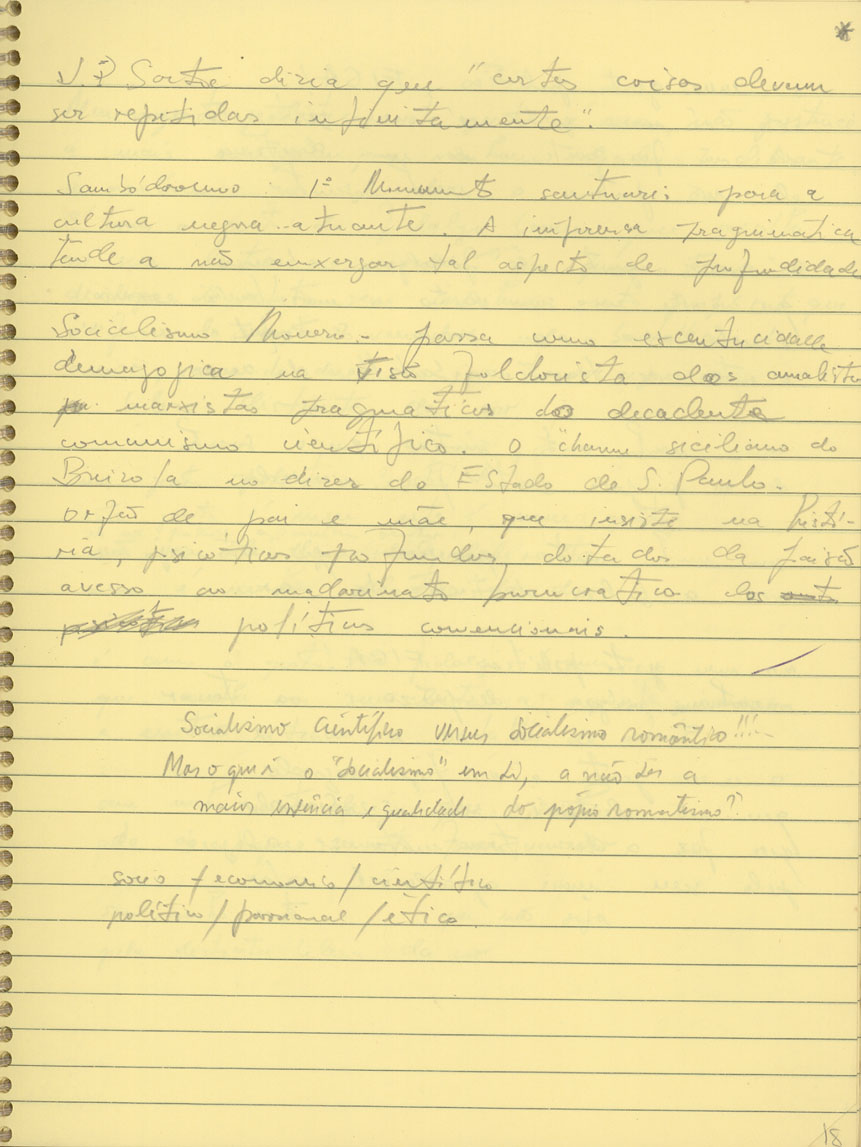 *
J.P Sartre diria que "certas coisas devem
ser repetidas infinitamente".
Sambódromo : 1º Monumento santuario para a
cultura negra atuante. A imprensa pragmática
tende a não enxergar tal aspecto de profundidade
Socialismo Moreno - passa como excentricidade
demagogica na visão folclorista dos analistas
marxistas pragmaticos do decadente
comunismo cientifico. O "charme siciliano do
Brizola no dizer do EStado de S. Paulo.
orfão de pai e mãe, que insiste na Histó-
ria, psicóticos profundos, dotados da paixão
avesso ao madarinato burocratico dos
políticos convencionais.
Socialismo Científico versus Socialismo romântico!!!
Mas o que é o "Socialismo" em si, a não ser a
maior essência e qualidade do própio romantismo?
socio / economico / científico
político / passional / ético.
18